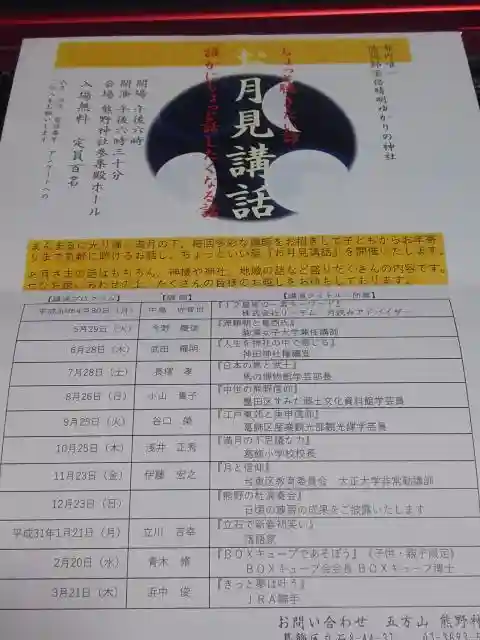 都内唯一
陰陽師安倍晴明ゆかりの神社
ちょっと聴きたい話
お月見講話
誰かにちょっと話したくなる話
開場 午後六時
開演 午後六時三十分
会場 熊野神社参集殿ホール
入場無料 定員百名
まんまるに光り輝く満月の下、毎回多彩な講師をお招きして子どもからお年寄
りまで気軽に聴けるお話し、ちょっといい話『お月見講話』を開催いたします。
お月さまの話はもちろん、神様や神社、地域の話など盛りだくさんの内容です。
ぜひお誘いあわせの上、たくさんの皆様のお越しをお待ちしております。
平成30年4月30日(月)
株式会社リーテム 月読みアドバイザー
5月29日(火) 今野 慶信 『源頼朝と葛西氏』
駒澤女子大学兼任講師
6月28日(木) 武田 『人生を神社の中で感じる』
神田神社権禰宜
7月28日(土) 長塚 孝 『日本の馬と武士』
馬の博物館学芸部長
8月26日(日) 小山 貴子 『中世の熊野信仰』
墨田区すみだ郷土文化資料館学芸員
9月25日(火) 谷口 榮 『江戸東郊と庚申信仰』
葛飾区産業観光部観光課学芸員
10月25日(木) 浅井 正秀 『満月の不思議な力』
葛飾小学校校長
11月23日(金) 伊藤 宏之 『月と信仰』
台東区教育委員会 大正大学非常勤講師
12月23日(日) 『熊野の杜演奏会』
日頃の練習の成果をご披露いたします
平成31年1月21日(月) 立川 吉幸 『立石で新春初笑い』
落語家
2月20日(水) 青木 『BOXキューブであそぼう』(子供・親子限定)
BOXキューブ会会長 BOXキューブ博士
3月21日(木) 浜中 俊 『きっと夢は叶う』
JRA騎手
お問い合わせ 五方山 熊野神
葛飾区立石8-44-31